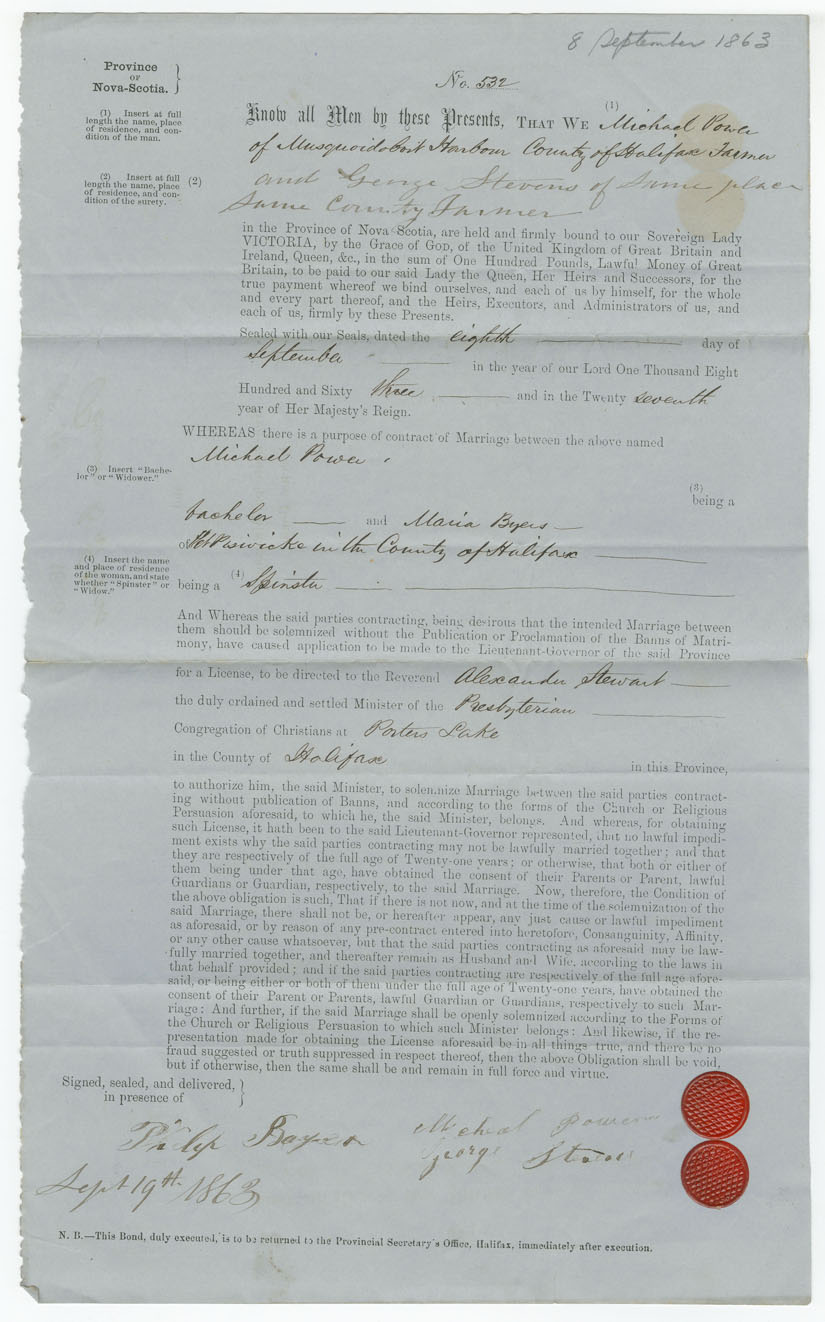 8 September 1863
Province
OF
Nova-Scotia.
No. 532
(1) Insert at full
length the name, place
of residence, and con-
dition of the man.
(1)
Know all Men by these Presents, THAT WE Michael Power
of Musquoidoboit Harbour County of Halifax Farmer
(2) Insert at full
length the name, place
of residence, and con-
dition of the surety.
(2)
and George Stevens of Same place
Same County Farmer
in the Province of Nova-Scotia, are held and firmly bound to our Sovereign Lady
VICTORIA, by the Grace of GOD, of the United Kingdom of Great Britain and
Ireland, Queen, &c., in the sum of One Hundred Pounds, Lawful Money of Great
Britain, to be paid to our said Lady the Queen, Her Heirs and Successors, for the
true payment whereof we bind ourselves, and each of us by himself, for the whole
and every part thereof, and the Heirs, Executors, and Administrators of us, and
each of us, firmly by these Presents.
Sealed with our Seals, dated the eighth day of
September in the year of our Lord One Thousand Eight
Hundred and Sixty three and in the Twenty seventh
year of Her Majesty's Reign.
WHEREAS there is a purpose of contract of Marriage between the above named
Michael Power
(3) Insert "Bache-
lor" or "Widower."
(3)
being a
bachelor and Maria Byers
of in the County of Halifax
(4) Insert the name
and place of residence
of the woman, and state
whether "Spinster" or
"Widow."
being a (4) Spinster
And Whereas the said parties contracting, being desirous that the intended Marriage between
them should be solemnized without the Publication or Proclamation of the Banns of Matri-
mony, have caused application to be made to the Lieutenant-Governor of the said Province
for a License, to be directed to the Reverend Alexander Stewart
the duly ordained and settled Minister of the Presbyterian
Congregation of Christians at Porters Lake
in the County of Halifax in this Province,
to authorize him, the said Minister, to solemnize Marriage between the said parties contract-
ing without publication of Banns, and according to the forms of the Church or Religious
Persuasion aforesaid, to which he, the said Minister, belongs. And whereas, for obtaining
such License, it hath been to the said Lieutenant-Governor represented, that no lawful impedi-
ment exists why the said parties contracting may not be lawfully married together; and that
they are respectively of the full age of Twenty-one years; or otherwise, that both or either of
them being under that age, have obtained the consent of their Parents or Parent, lawful
Guardians or Guardian, respectively, to the said Marriage. Now, therefore, the Condition of
the above obligation is such, That if there is not now, and at the time of the solemnization of the
said Marriage, there shall not be, or hereafter appear, any just cause or lawful impediment
as aforesaid, or by reason of any pre-contract entered into heretofore, Consanguinity, Affinity,
or any other cause whatsoever, but that the said parties contracting as aforesaid may be law-
fully married together, and thereafter remain as Husband and Wife, according to the laws in
that behalf provided; and if the said parties contracting are respectively of the full age afore-
said, or being either or both of them under the full age of Twenty-one years, have obtained the
consent of their Parent or Parents, lawful Guardian or Guardians, respectively to such Mar-
riage: And further, if the said Marriage shall be openly solemnized according to the Forms of
the Church or Religious Persuasion to which such Minister belongs: And likewise, if the re-
presentation made for obtaining the License aforesaid be in all things true, and there be no
fraud suggested or truth suppressed in respect thereof, then the above Obligation shall be void,
but if otherwise, then the same shall be and remain in full force and virtue.
Signed, sealed, and delivered,
in presence of
Philip
George
Sept 19th 1863
N. B.—This Bond, duly executed, is to be returned to the Provincial Secretary's Office, Halifax, immediately after execution.